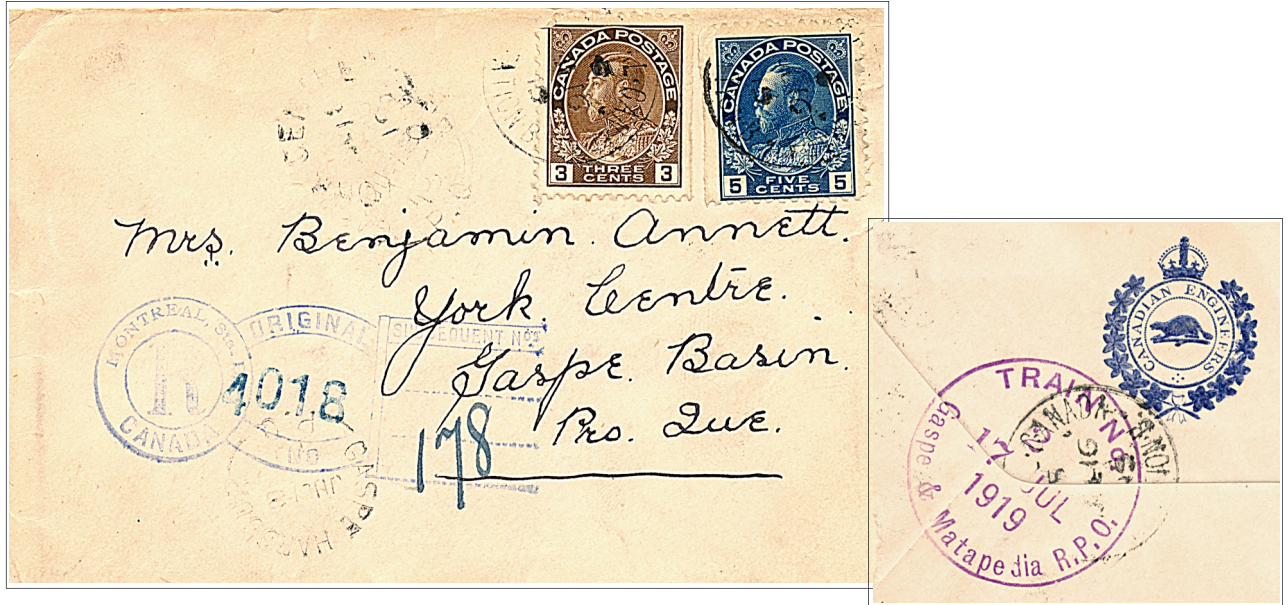 CANADA POSTAGE
3 THREE CENTS 3
CANADA POSTAGE
5 FIVE CENTS 5
Mrs. Benjamin. Annett.
York. Centre.
Gaspe. Basin.
Pro. Que.
MONTREAL, Stn.
R
CANADA
ORIGINAL
4018
SUBSEQUENT Nos
178
GASPE HARBOUR
CANADIAN ENGINEERS
TRAIN No
17 JUL
1919
Gaspe & Matapedia R.P.O.
CANADA